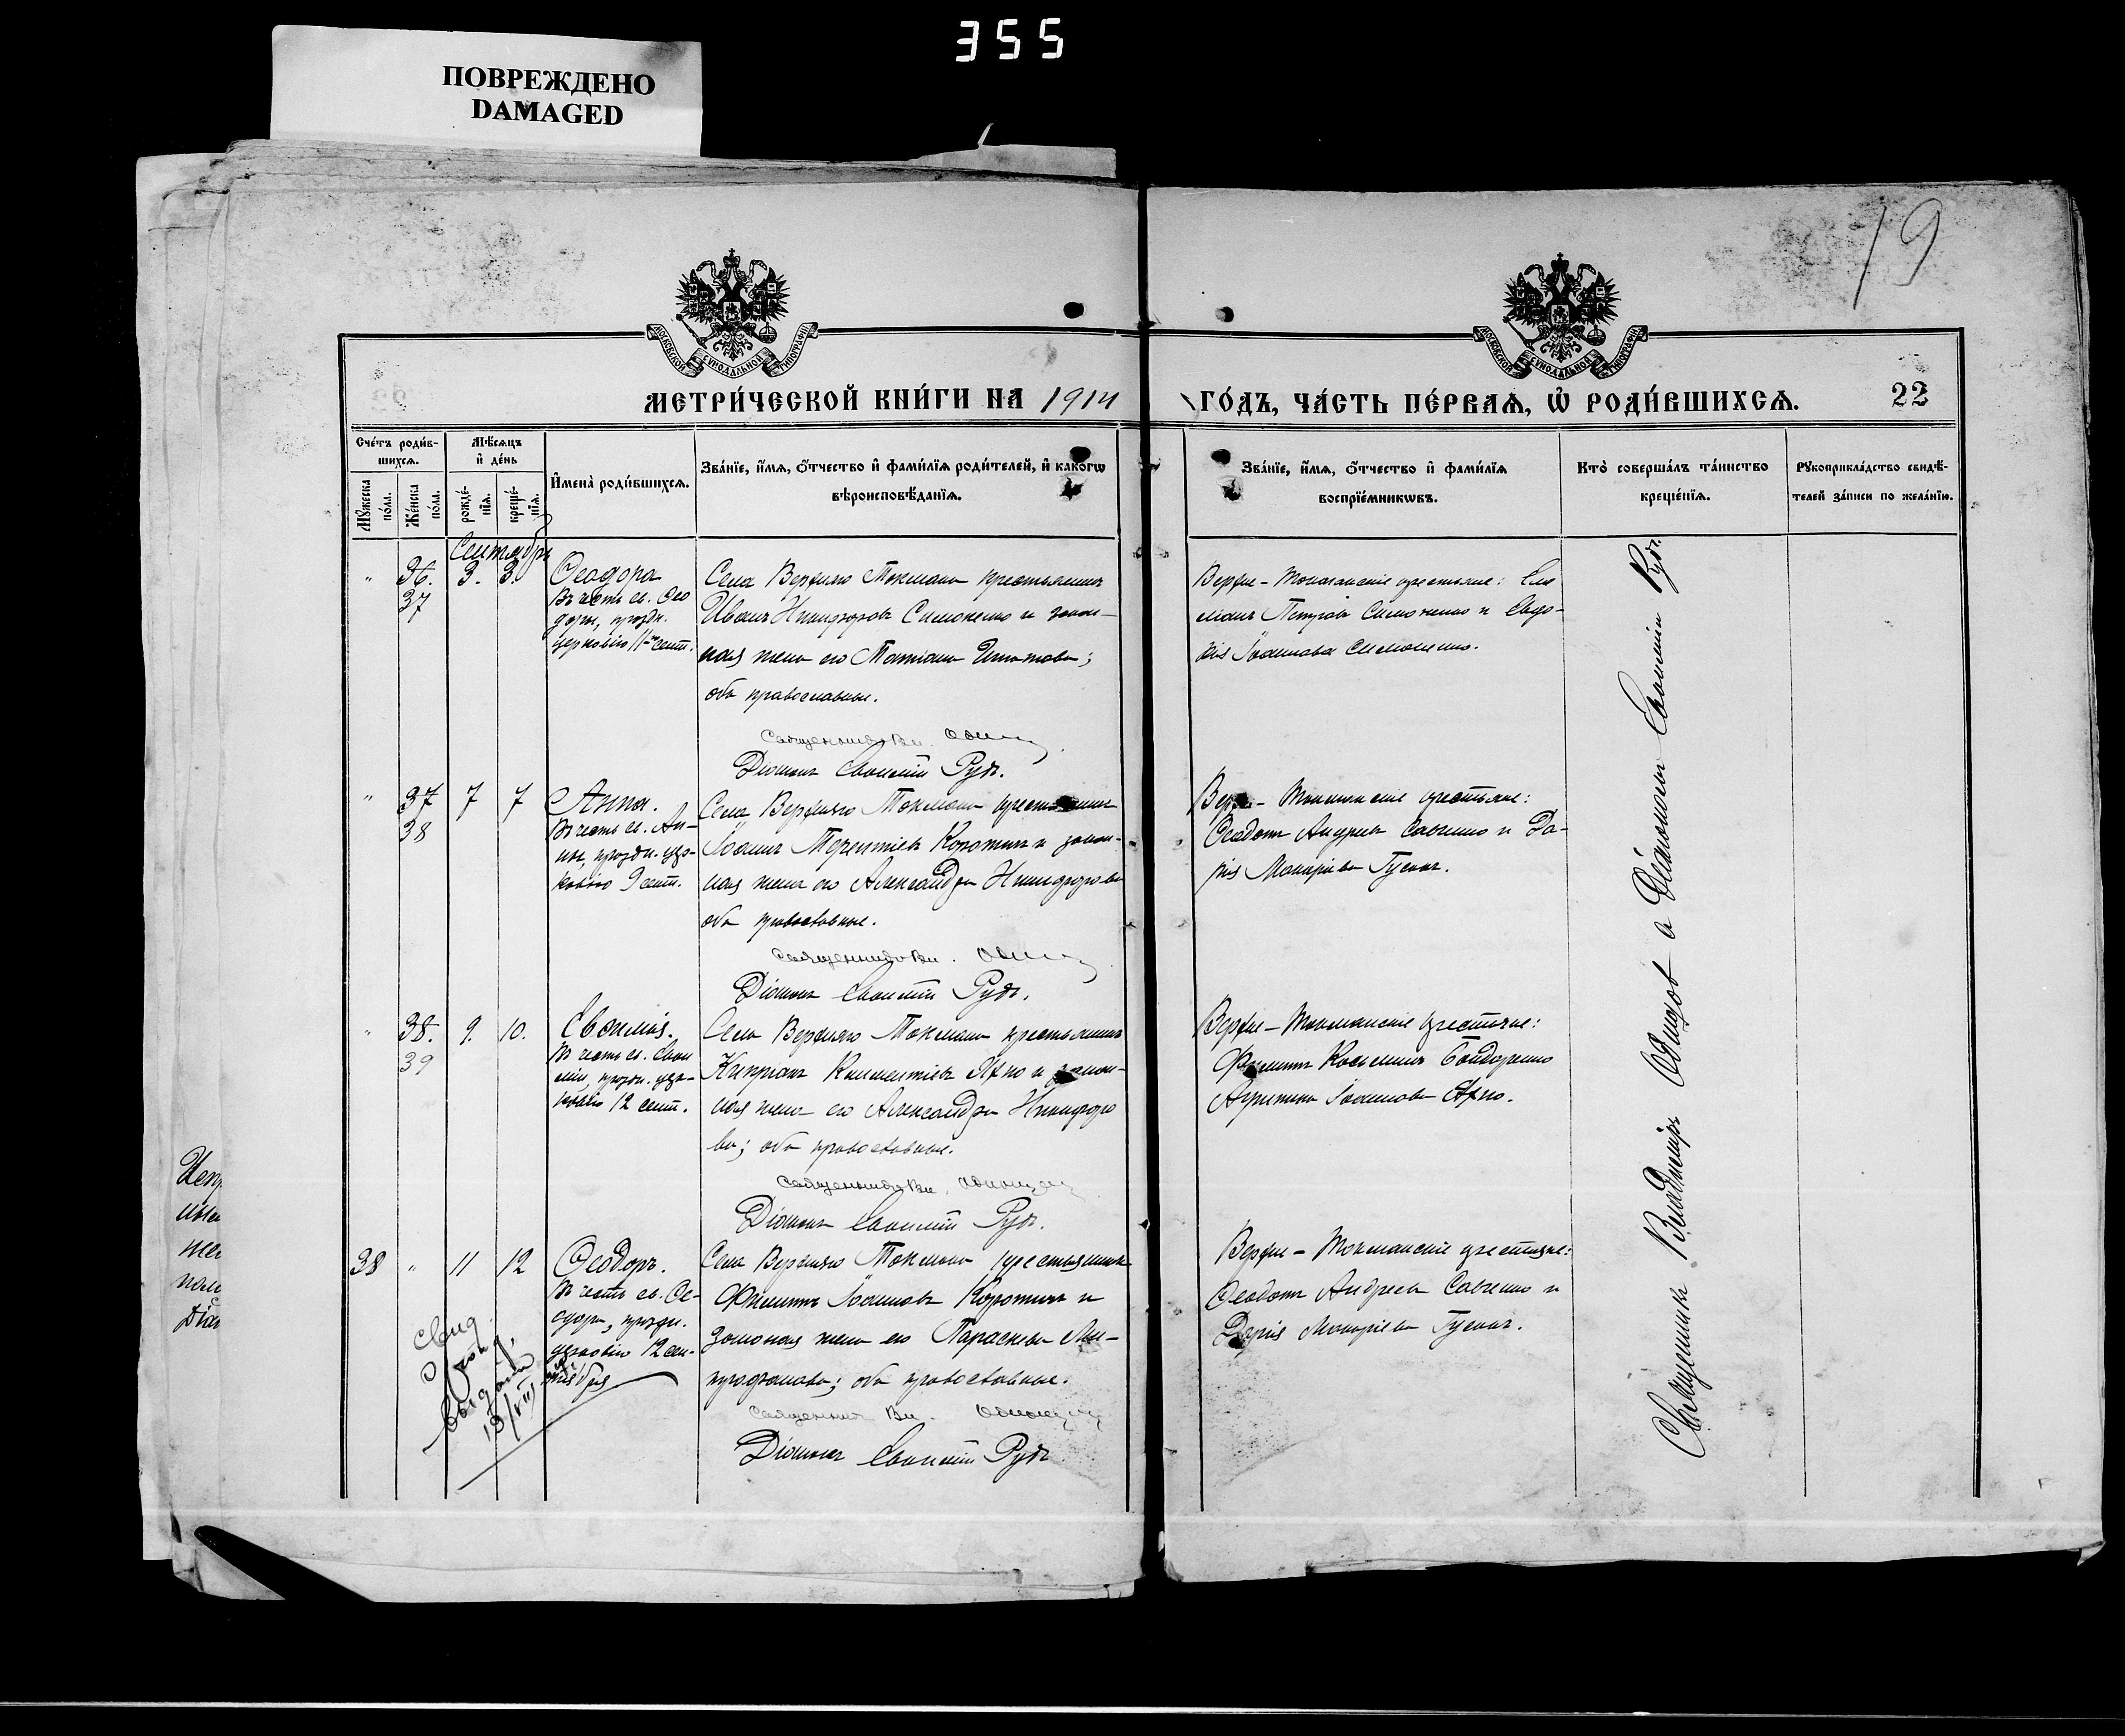 355
ПОВРЕЖДЕНО
DAMAGED
19
МОСКОВСКОЙ СѴНОДАЛЬНОЙ ТИПОГРАФІИ
МОСКОВСКОЙ СѴНОДАЛЬНОЙ ТИПОГРАФІИ
МЕТРИ́ЧЕСКОЙ КНИ́ГИ НА 1914
ГО́ДЪ, ЧА́СТЬ ПЕ́РВАѦ, Ѡ҆ РОДИ́ВШИХСѦ.
22
Сче́тъ роди́в-
шихсѧ.
Мꙋ́жеска по́ла.
Же́нска по́ла.
Мѣ́сѧцъ
и҆ де́нь
рожде́-нїѧ.
креще́-нїѧ.
И҆мена̀ роди́вшихсѧ.
Зва́нїе, и҆́мѧ, ѻ҆́тчество и҆ фами́лїѧ роди́телей, и҆ како́гѡ
вѣроисповѣ́данїѧ.
Зва́нїе, и҆́мѧ, ѻ҆́тчество и҆ фами́лїѧ
воспрїе́мникѡвъ.
Кто̀ соверша́лъ та́инство
креще́нїѧ.
Рꙋкоприкла́дство свидѣ́-
телей за́писи по жела́нїю.
Сентябрь
" 36. 3. 3. Ѳеодора
37
Въ честь св. Ѳео
доры, праздн.
церковію 11го сент.
Села Верхняго Токмака крестьянинъ
Иванъ Никифоровъ Симоненко и закон-
ная жена его Татіана Игнатова;
оба православные.
Священникъ Вл.
Діаконъ Евѳимій Рудъ.
Верхне-Токмакскіе крестьяне:
Петровъ Симоненко и Евдо-
кія Іоаннова Симоненко.
" 37 7 7 Анна.
38
Въ честь св. Ан-
ны, праздн. цер-
ковію 9 сент.
Села Верхняго Токмака крестьянинъ
Іоаннъ Терентіевъ Коротичъ и закон-
ная жена его Александра Никифорова
оба православные.
Священникъ Вл.
Діаконъ Евѳимій Рудъ.
Верхне-Токмакскіе крестьяне:
Ѳеодотъ Андреевъ Савченко и Да-
рія Макаріева
" 38. 9. 10. Евѳимія.
39
Въ честь св. Евѳи
міи, праздн. цер-
ковію 12 сент.
Села Верхняго Токмака крестьянинъ
Кипріанъ Климентіевъ Яхно и закон-
ная жена его Александра Никифоро
ва; оба православные.
Священникъ Вл.
Діаконъ Евѳимій Рудъ.
Верхне-Токмакскіе крестьяне:
Филиппъ Косьминъ Бондаренко
Агрипина Іоаннова Яхно.
38 " 11 12 Ѳеодоръ.
Въ честь св. Ѳе-
одора, праздн.
церковію 12 сен-
тября
Села Верхняго Токмака крестьянинъ
Филиппъ Іоанновъ Коротичъ и
законная жена его Параскева Ми-
трофанова; оба православные.
Священникъ Вл.
Діаконъ Евѳимій Рудъ
Верхне-Токмакскіе крестьяне:
Ѳеодотъ Андреевъ Савченко и
Дарія Макаріева
Священникъ Владиміръ и Діаконъ Евѳимій Рудъ.